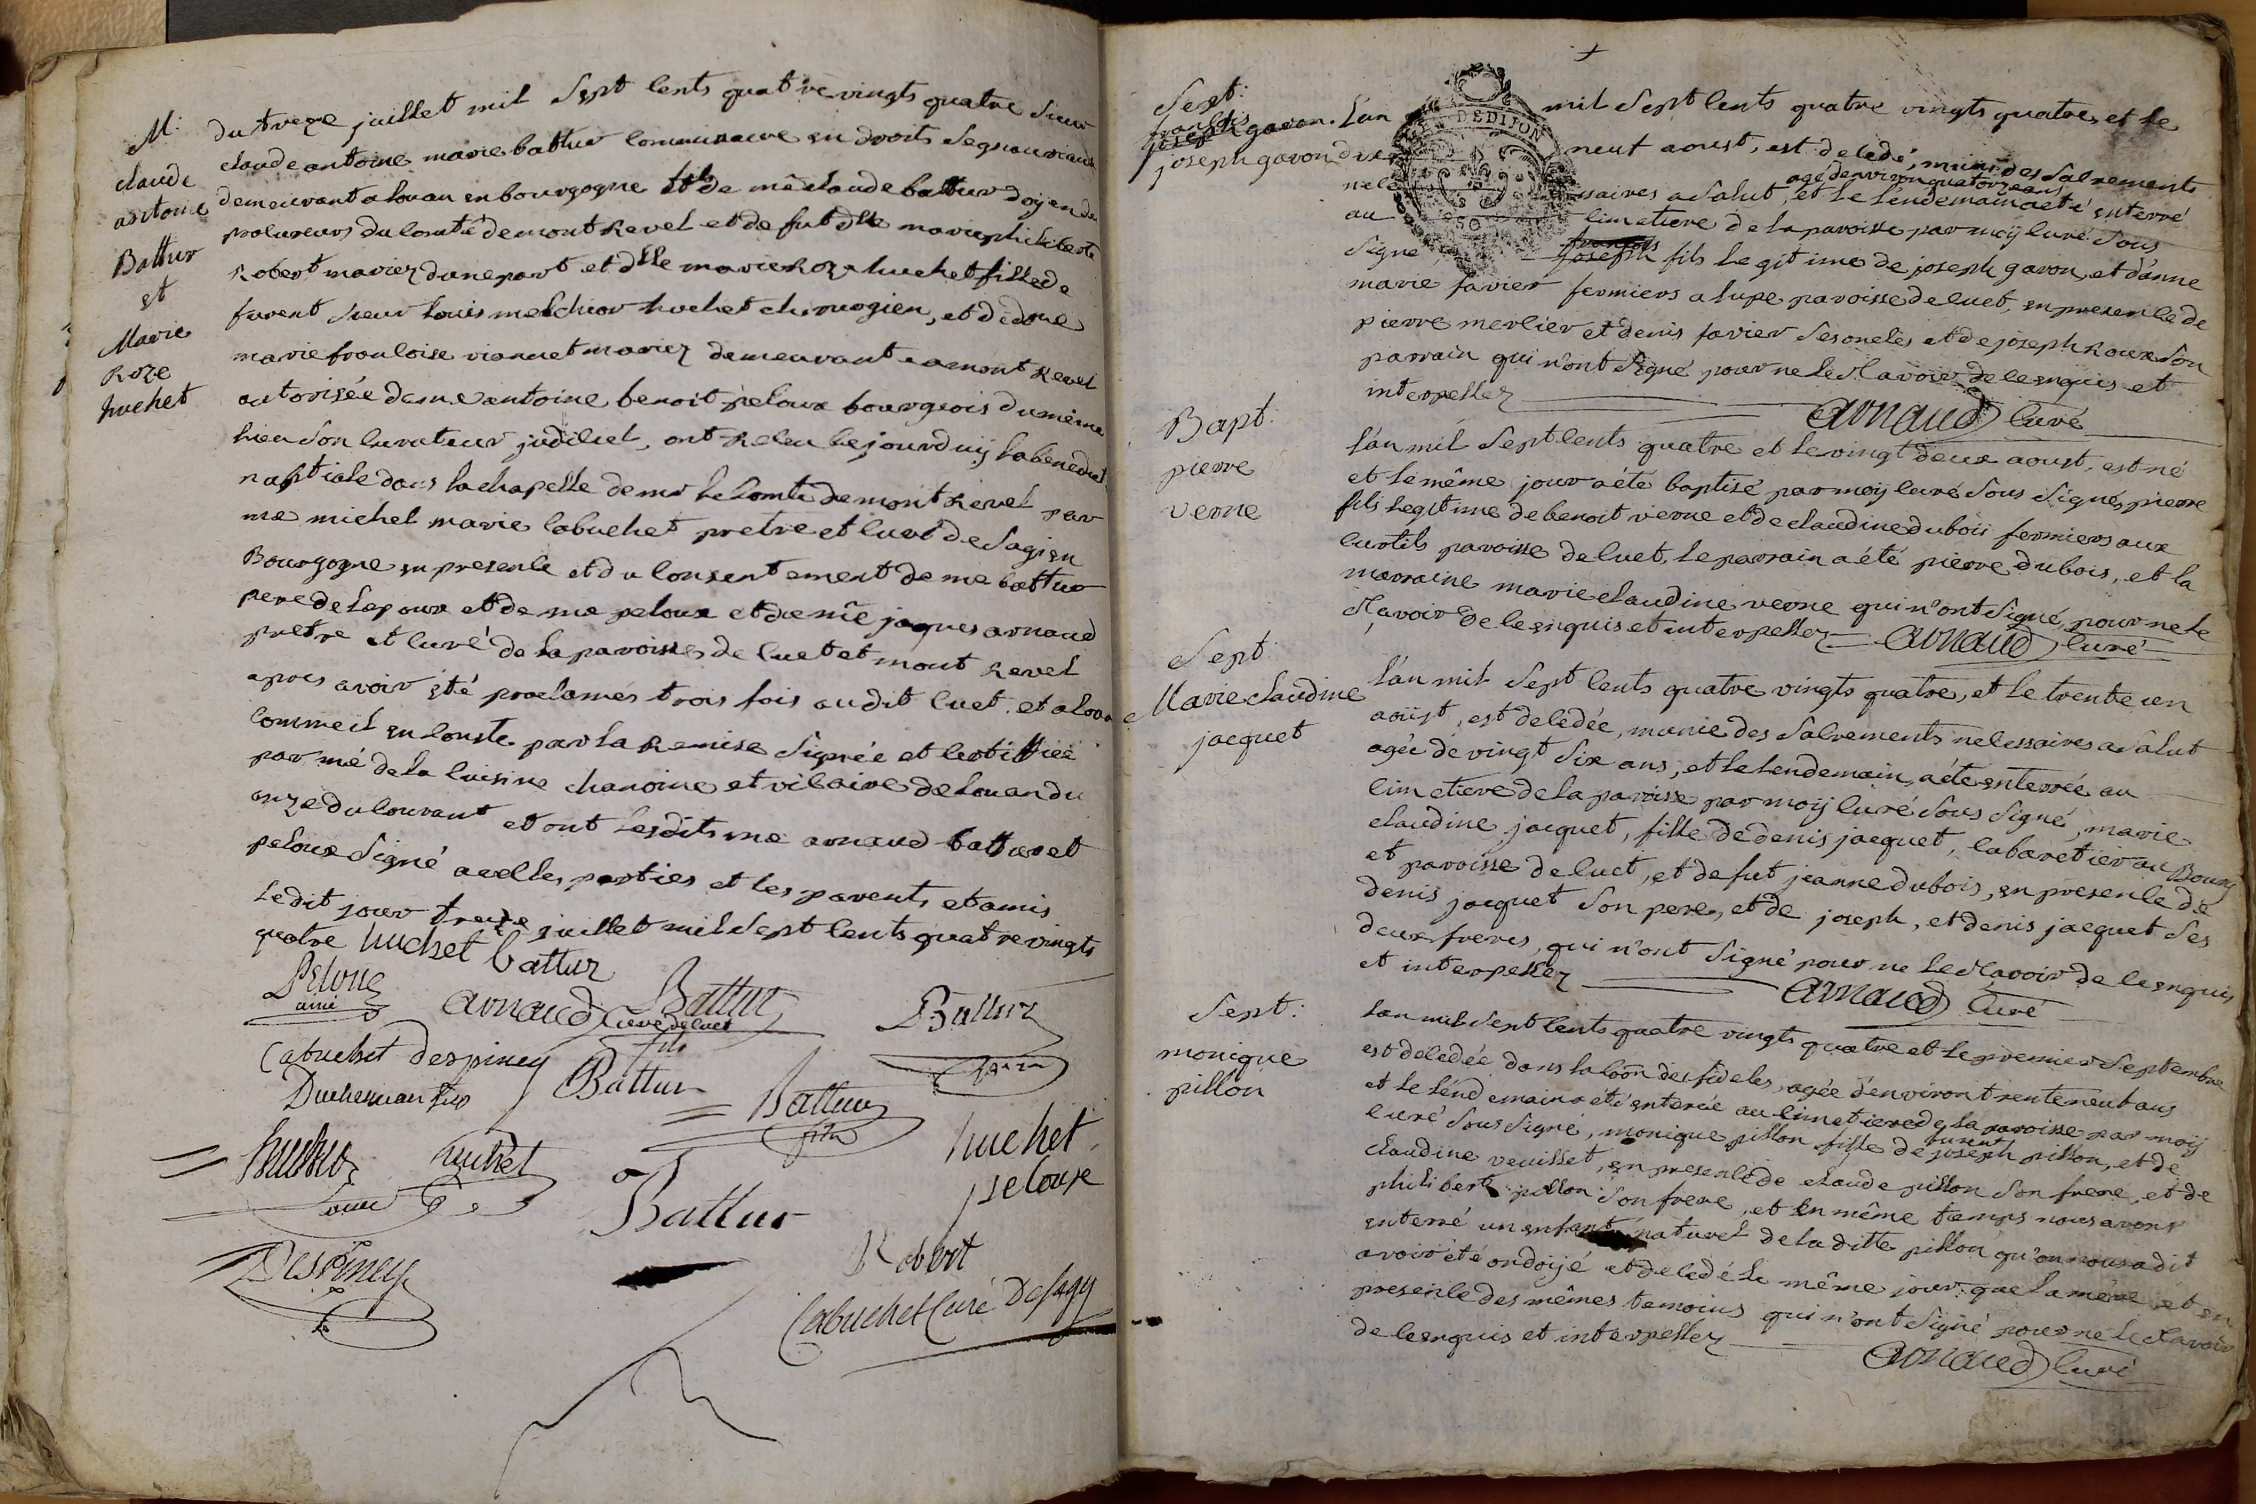 M:
claude
antoine
Battur
et
Marie
Roze
huchet
du treze juillet mil sept cents quatre vingts quatre sieur
claude antoine marie battur commissaire en droits segnauriaux
demeurant a louan en bourgogne fils de me claude battur doyen des
procureurs du comté de mont Revel et de fut dlle marie philiberte
Robert mariez d'une part et dlle marie Roze huchet fille de
furent sieur louis melchior huchet chirurgien, et de dme
marie françoise vionnet mariez demeurant a mont Revel
autorisée de me antoine benoit peloux bourgeois du même
lieu son curateur judiciel, ont Reçu cejourd'uij la bénédict
nuptiale dans la chapelle de mr le Comte de mont Revel par
me michel marie cabuchet pretre et curé de sagi en
Bourgogne en presence et du consentement de me battur
pere de l'epoux et de me peloux et de me jaques arnaud
pretre et curé de la paroisse de cuet et mont Revel
apres avoir été proclamés trois fois audit cuet et a louan
comme il en conste par la Remise signée et certifiée
par mé de la cuisine chanoine et vicaire de louan du
onze du courant et ont lesdits me arnaud battur et
peloux signé avec les parties et les parents et amis
ledit jour treize juillet mil sept cents quatre vingts
quatre huchet battur
Peloux
ainé
arnaud curé de cuet
Battur
fils
Battur
Cabuchet despiney
Battur
Duchesnan fils
Battur
fils
huchet
huchet
huchet
peloux
Battur
Robert
Despiney
Cabuchet Curé De sagy
Sept:
françois
joseph gavon.
joseph gavon
L'an mil sept cents quatre vingts quatre, et le
neuf aoust, est decedé, muni des sacrements
agé d'environ quatorze ans
nécessaires a salut, et le lendemain a eté enterré
au cimetiere de la paroisse par moij curé sous
signé
françois
joseph fils legitime de joseph gavon, et d'anne
marie favier fermiers a lupe paroisse de cuet, en presence de
pierre merlier et denis favier ses oncles et de joseph Roux son
parrain qui n'ont signé pour ne le sçavoir de ce enquis et
interpellez
arnaud curé
Bapt.
pierre
verne
L'an mil sept cents quatre et le vingt deux aoust, est né
et le même jour a été baptisé par moij curé sous signé, pierre
fils legitime de benoit verne et de claudine dubois fermiers aux
curtils paroisse de cuet, le parrain a été pierre dubois, et la
marraine marie claudine verne qui n'ont signé, pour ne le
sçavoir de ce enquis et interpellez arnaud curé
Sept
Marie claudine
jacquet
L'an mil sept cents quatre vingts quatre, et le trente un
aoüst, est decedée, munie des sacrements necessaires a salut
agée de vingt six ans, et le lendemain a été enterrée au
cimetiere de la paroisse par moij curé sous signé, marie
claudine jacquet, fille de denis jacquet, cabaretier au Bourg
et paroisse de cuet, et de fut jeanne dubois, en presence de
denis jacquet son pere, et de joseph, et denis jacquet ses
deux freres, qui n'ont signé pour ne le sçavoir de ce enquis
et interpellez
arnaud curé
Sept:
monique
pillon
L'an mil sept cents quatre vingts quatre et le premier septembre
est decedée dans la coõn des fideles, agée d'environ trente neuf ans
et le lendemain a été enterrée au cimetiere de la paroisse par moij
curé sous signé, monique pillon fille de
furent
joseph pillon, et de
claudine veuillet, en presence de claude pillon son frere, et de
philibert pillon son frere, et en même temps nous avons
enterré un enfant naturel de la ditte pillon qu'on nous a dit
avoir été ondoijé et decedé le même jour que la mere, et en
presence des mêmes temoins qui n'ont signé pour ne le sçavoir
de ce enquis et interpellez
arnaud curé